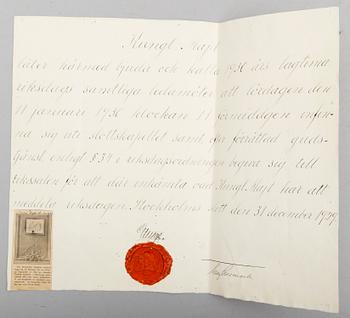 Kungl. Maj:t
låter härmed bjuda och kalla 1930 års lagtima
riksdags samtliga ledamöter att lördagen den
11 januari 1930 klockan 11 förmiddagen infin-
na sig uti slottskapellet samt efter förrättad guds-
tjänst enligt § 34 i riksdagsordningen begiva sig till
rikssalen för att där inhämta vad Kungl. Maj:t har att
meddela riksdagen. Stockholms slott den 31 december 1929.